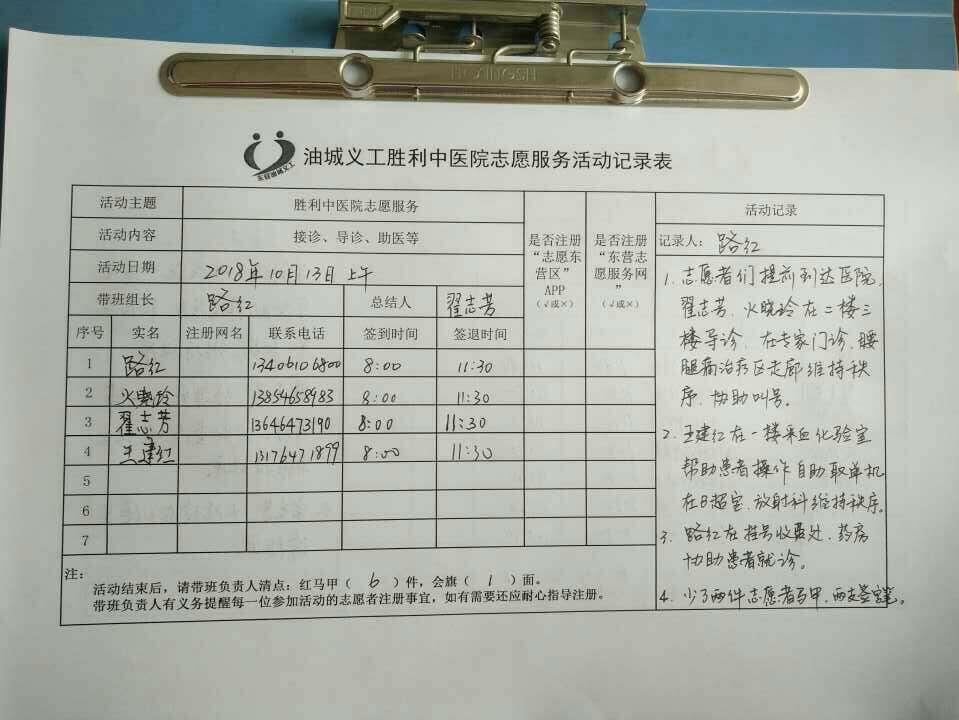 HONGJNGSH
东营油城义工
油城义工胜利中医院志愿服务活动记录表
活动主题 胜利中医院志愿服务
活动内容 接诊、导诊、助医等
活动日期 2018年10月13日上午
带班组长 路红 总结人 翟志芳
是否注册“志愿东营区”APP（√或×）
是否注册“东营志愿服务网”（√或×）
序号 实名 注册网名 联系电话 签到时间 签退时间
1 路红 13406106800 8:00 11:30
2 火晓玲 13854658983 8:00 11:30
3 翟志芳 13646473190 8:00 11:30
4 王建红 13176471899 8:00 11:30
5
6
7
注：
活动结束后，请带班负责人清点：红马甲（ 6 ）件，会旗（ 1 ）面。
带班负责人有义务提醒每一位参加活动的志愿者注册事宜，如有需要还应耐心指导注册。
活动记录
记录人：路红
1、志愿者们提前到达医院，
翟志芳、火晓玲在二楼三
楼导诊、在专家门诊、腰
腿痛治疗区走廊维持秩
序、协助叫号。
2、王建红在一楼采血化验室
帮助患者操作自助取单机
在B超室、放射科维持秩序。
3、路红在挂号收费处、药房
协助患者就诊。
4、少了两件志愿者马甲，两支签字笔。